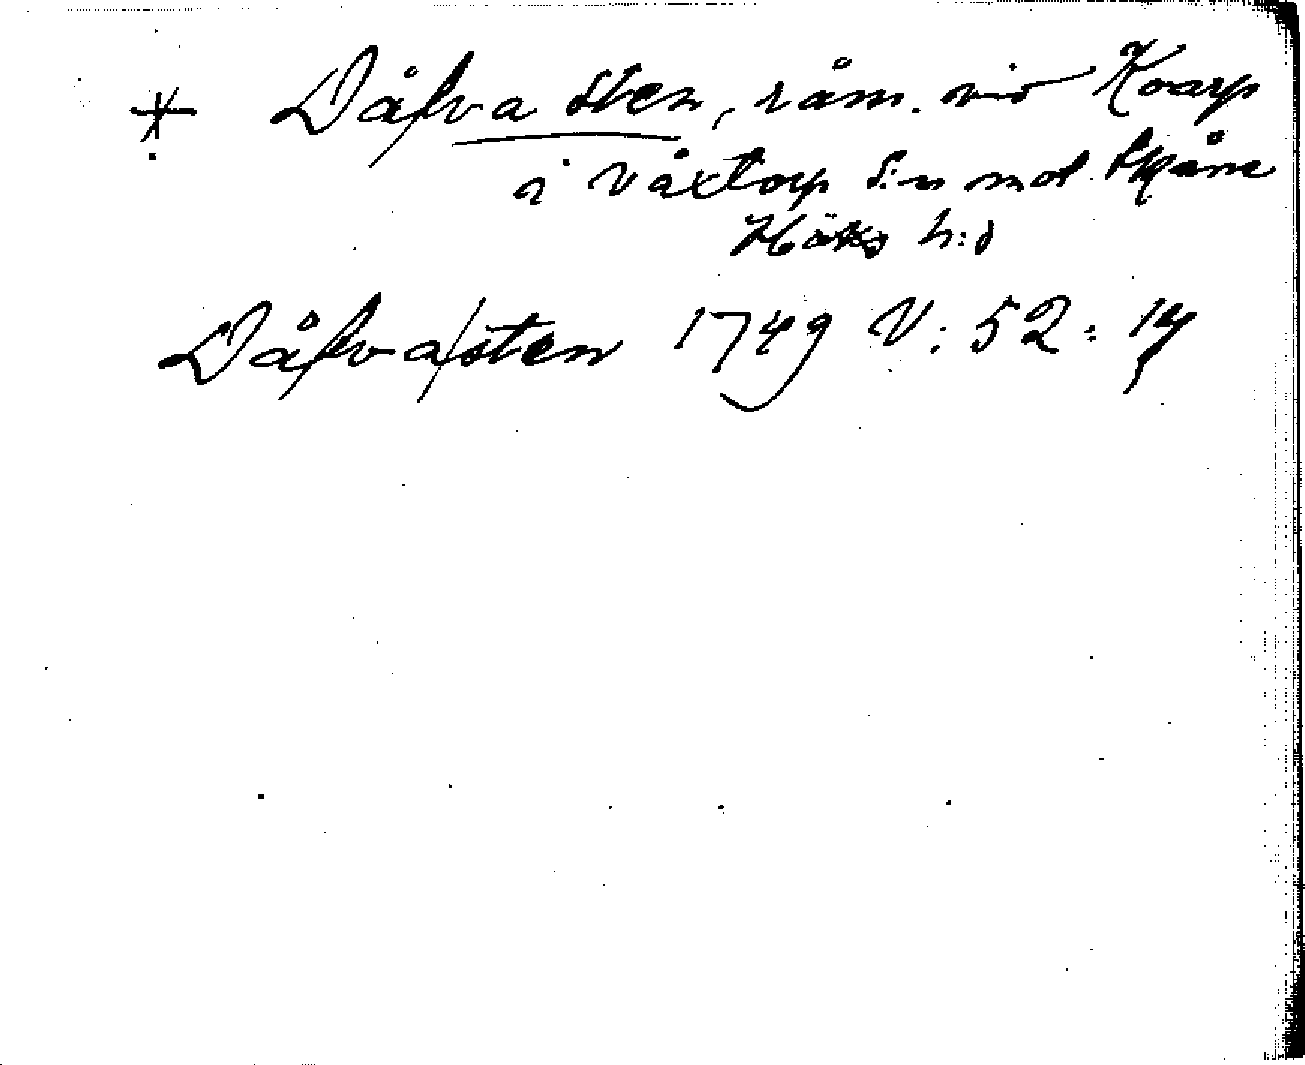 * Dåfva sten, råm. vid Koarp
i Våxtorp s:n mot Skåne
Höks h:d
Dåfvasten 1749 V: 52: 14